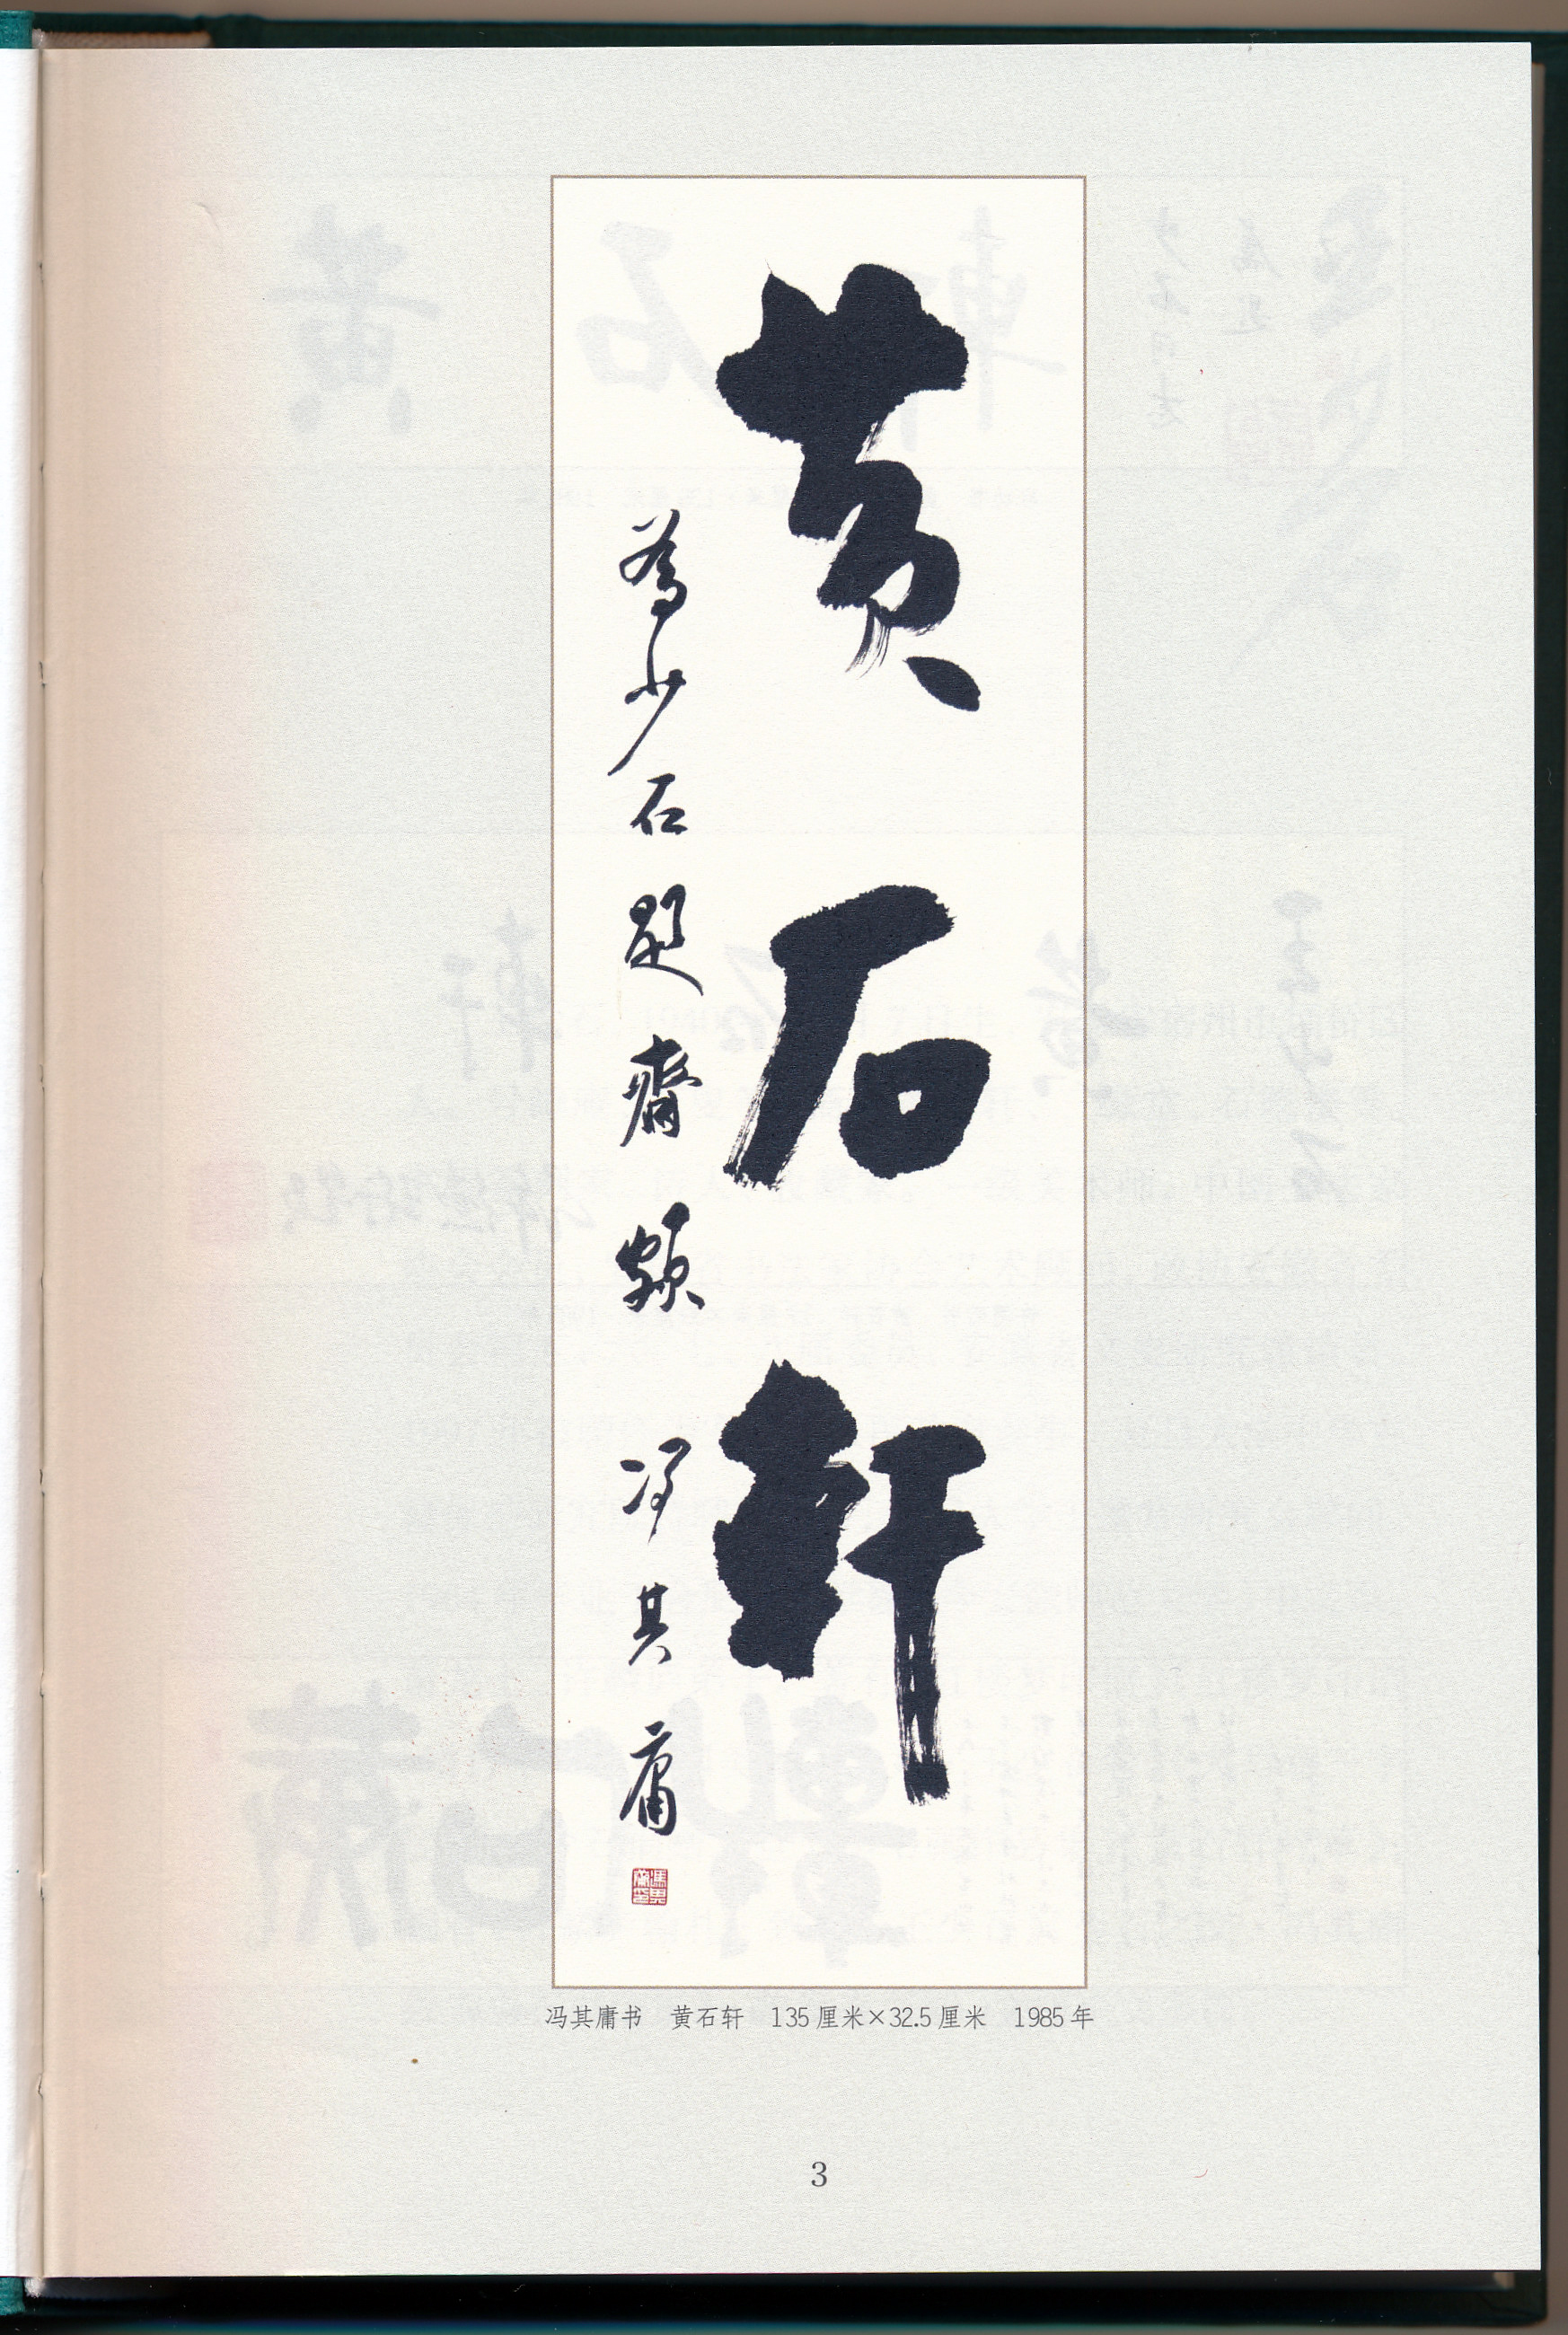 黄石軒
為少石題齋額 馮其庸
冯其庸书 黄石轩 135厘米×32.5厘米 1985年
3